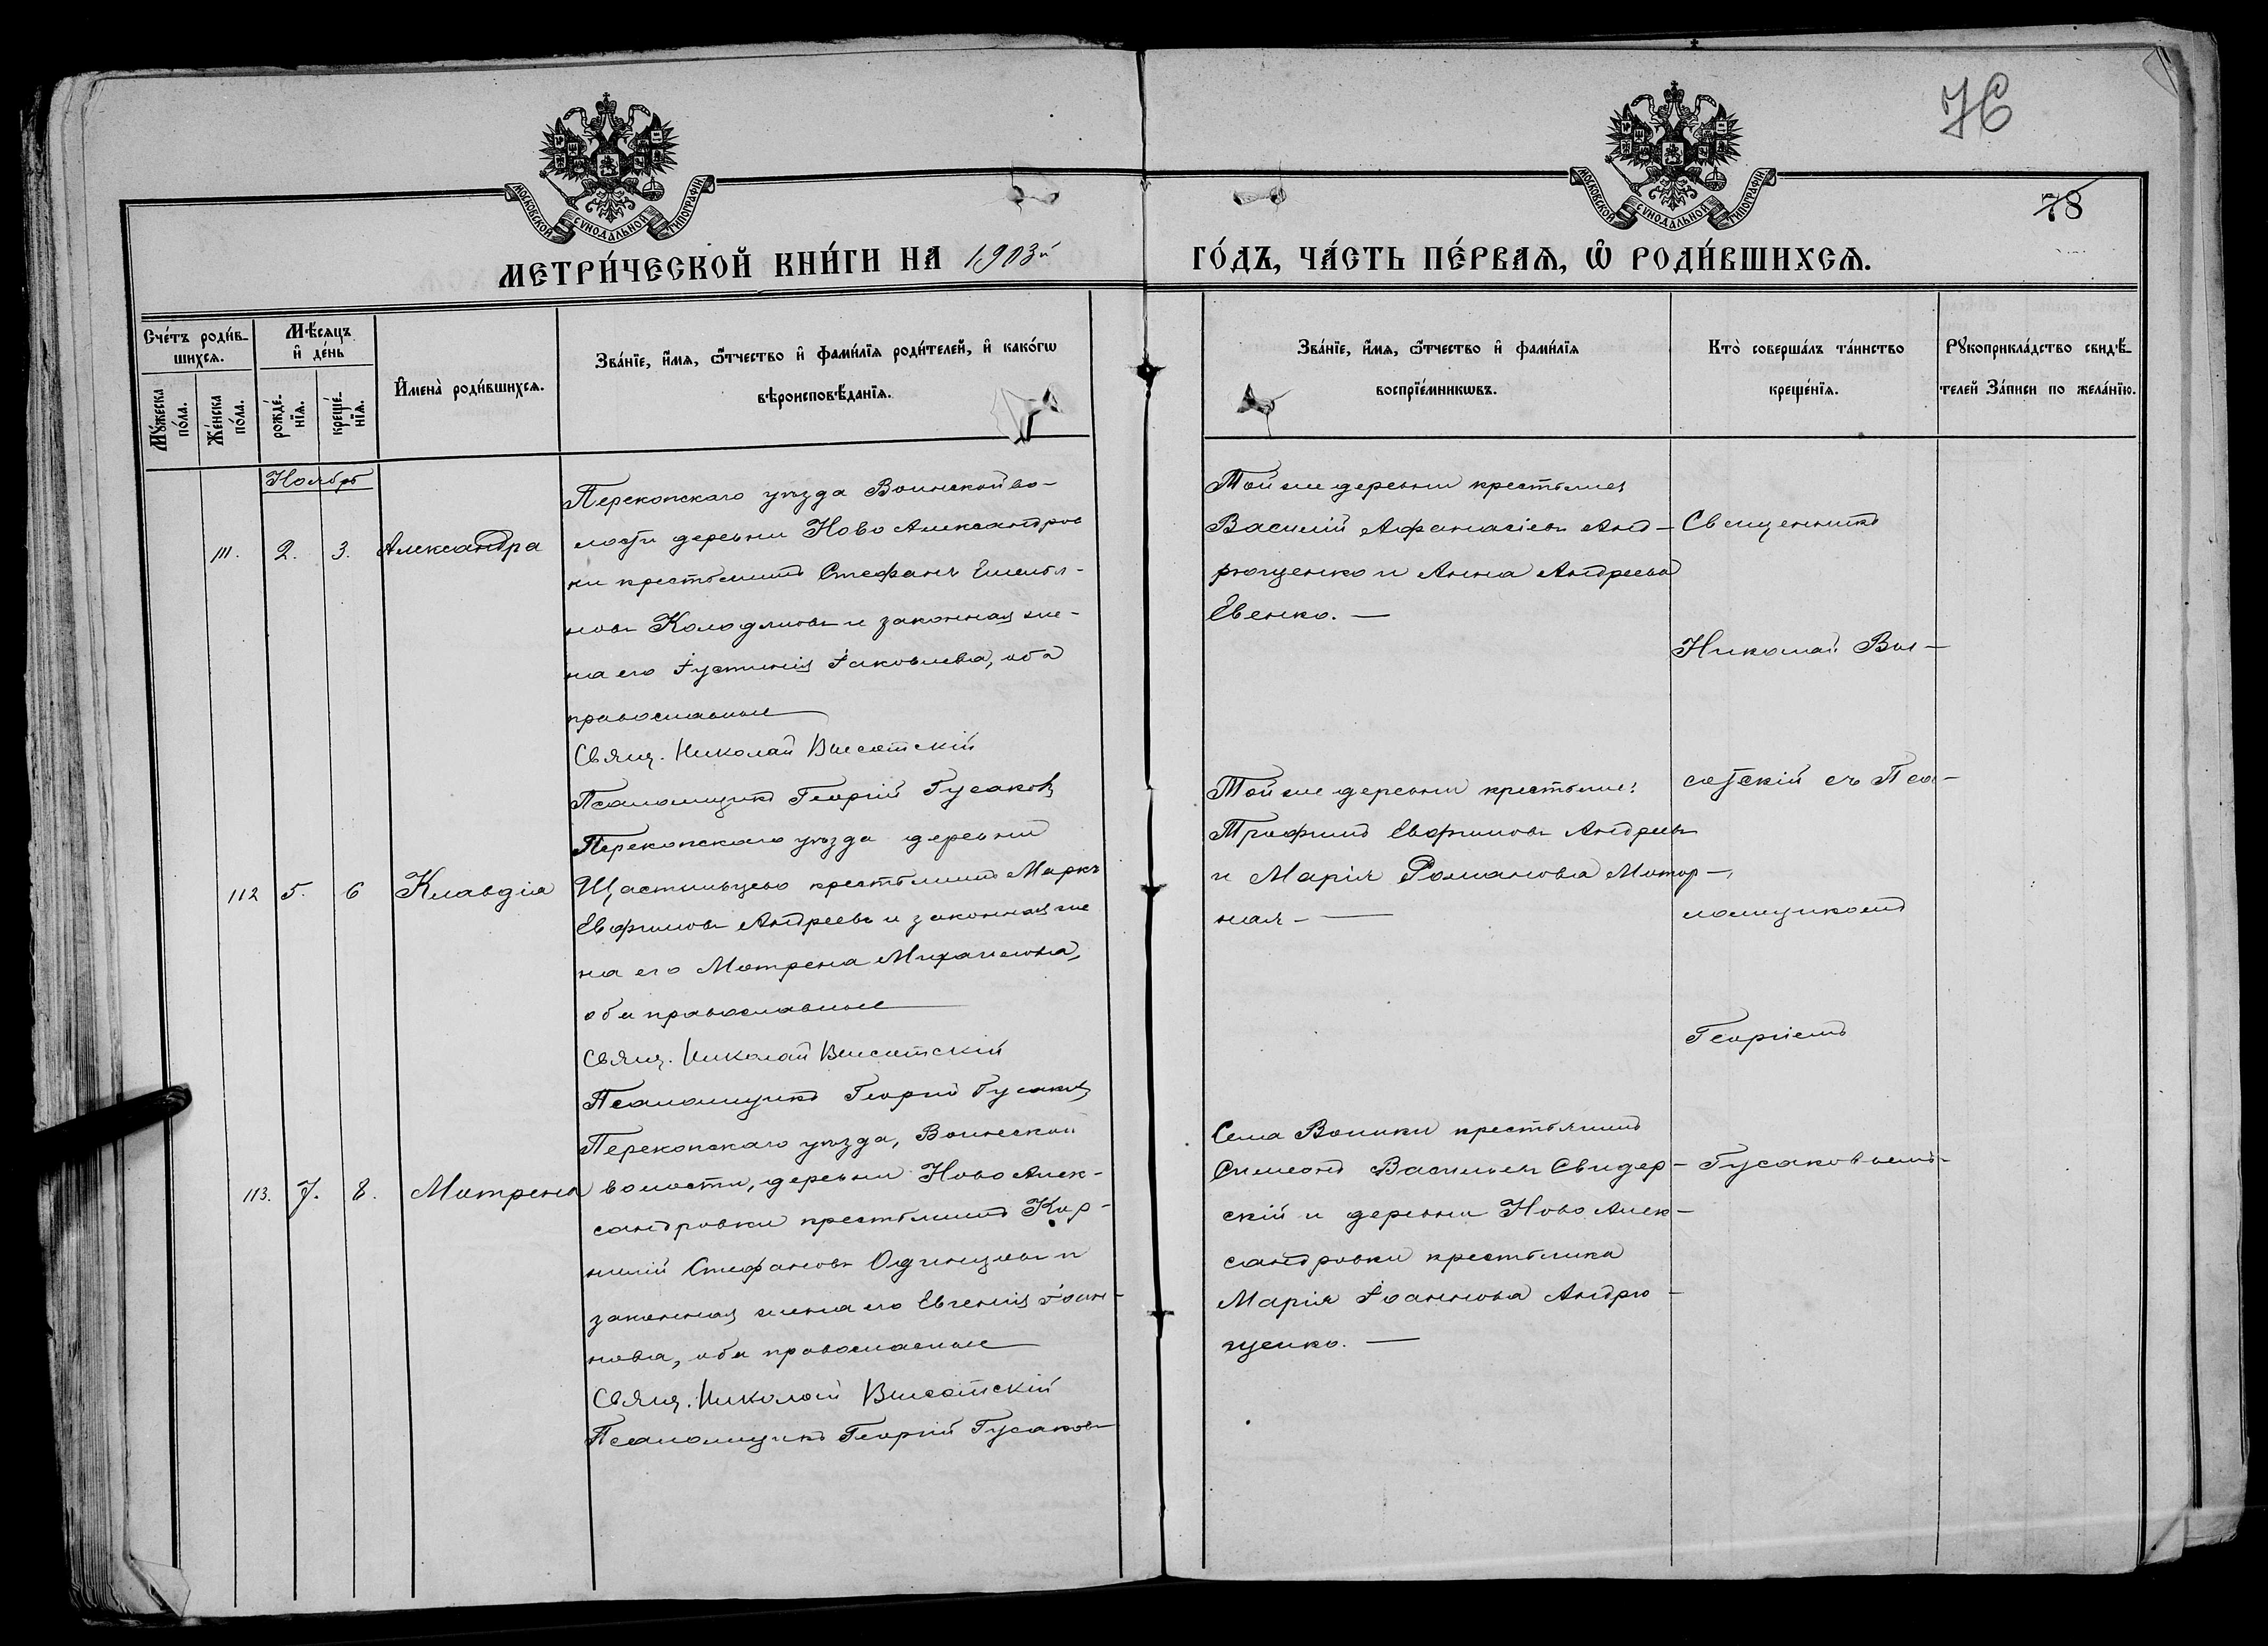 76
78
МОСКОВСКОЙ СѴНОДАЛЬНОЙ ТИПОГРАФІИ
МОСКОВСКОЙ СѴНОДАЛЬНОЙ ТИПОГРАФІИ
МЕТРИ́ЧЕСКОЙ КНИ́ГИ НА 1903й
ГО́ДЪ, ЧА́СТЬ ПЕ́РВАѦ, Ѡ҆ РОДИ́ВШИХСѦ.
Сче́тъ роди́в-
шихсѧ.
Мꙋ́жеска по́ла.
Же́нска по́ла.
Мѣ́сѧцъ
и҆ де́нь
рожде́-
нїѧ.
креще́-
нїѧ.
И҆мена̀ роди́вшихсѧ.
Зва́нїе, и҆́мѧ, ѻ҆́тчество и҆ фами́лїѧ роди́телей, и҆ како́гѡ
вѣроисповѣ́данїѧ.
Зва́нїе, и҆́мѧ, ѻ҆́тчество и҆ фами́лїѧ
воспрїе́мникѡвъ.
Кто̀ соверша́лъ та́инство
креще́нїѧ.
Рꙋкоприкла́дство свидѣ́-
телей За́писи по жела́нїю.
Ноябрь
111. 2. 3. Александра
Перекопскаго уѣзда Воинской во-
лости деревни Ново Александров
ки крестьянинъ Стефанъ Емелья-
новъ Колодяновъ и законная же-
на его Іустинія Іаковлева, оба
православные
Свящ. Николай Высотскій
Псаломщикъ Георгій Гусаковъ
Той же деревни крестьяне:
Василій Афанасіевъ Анд-
рющенко и Анна Андреева
Евенко. —
112 5. 6 Клавдія
Перекопскаго уѣзда деревни
Щастливцево крестьянинъ Маркъ
Евфимовъ Андреевъ и законная же
на его Матрена Михаилова,
оба православные
Свящ. Николай Высотскій
Псаломщикъ Георгій Гусаковъ
Той же деревни крестьяне:
Трофимъ Евфимовъ Андреевъ
и Марія Романова Мотор-
ная —
113. 7. 8. Матрена
Перекопскаго уѣзда, Воинской
волости, деревни Ново Алек-
сандровки крестьянинъ Кор-
нилій Стефановъ Одинцовъ и
законная жена его Евгенія Іоан-
нова, оба православные
Свящ. Николай Высотскій
Псаломщикъ Георгій Гусаковъ
Села Воинки крестьянинъ
Симеонъ Васильевъ Свидер-
скій и деревни Ново Алек-
сандровки крестьянка
Марія Іоаннова Андрю-
щенко. —
Священникъ
Николай Выс-
сотскій съ Пса-
ломщикомъ
Георгіемъ
Гусаковымъ